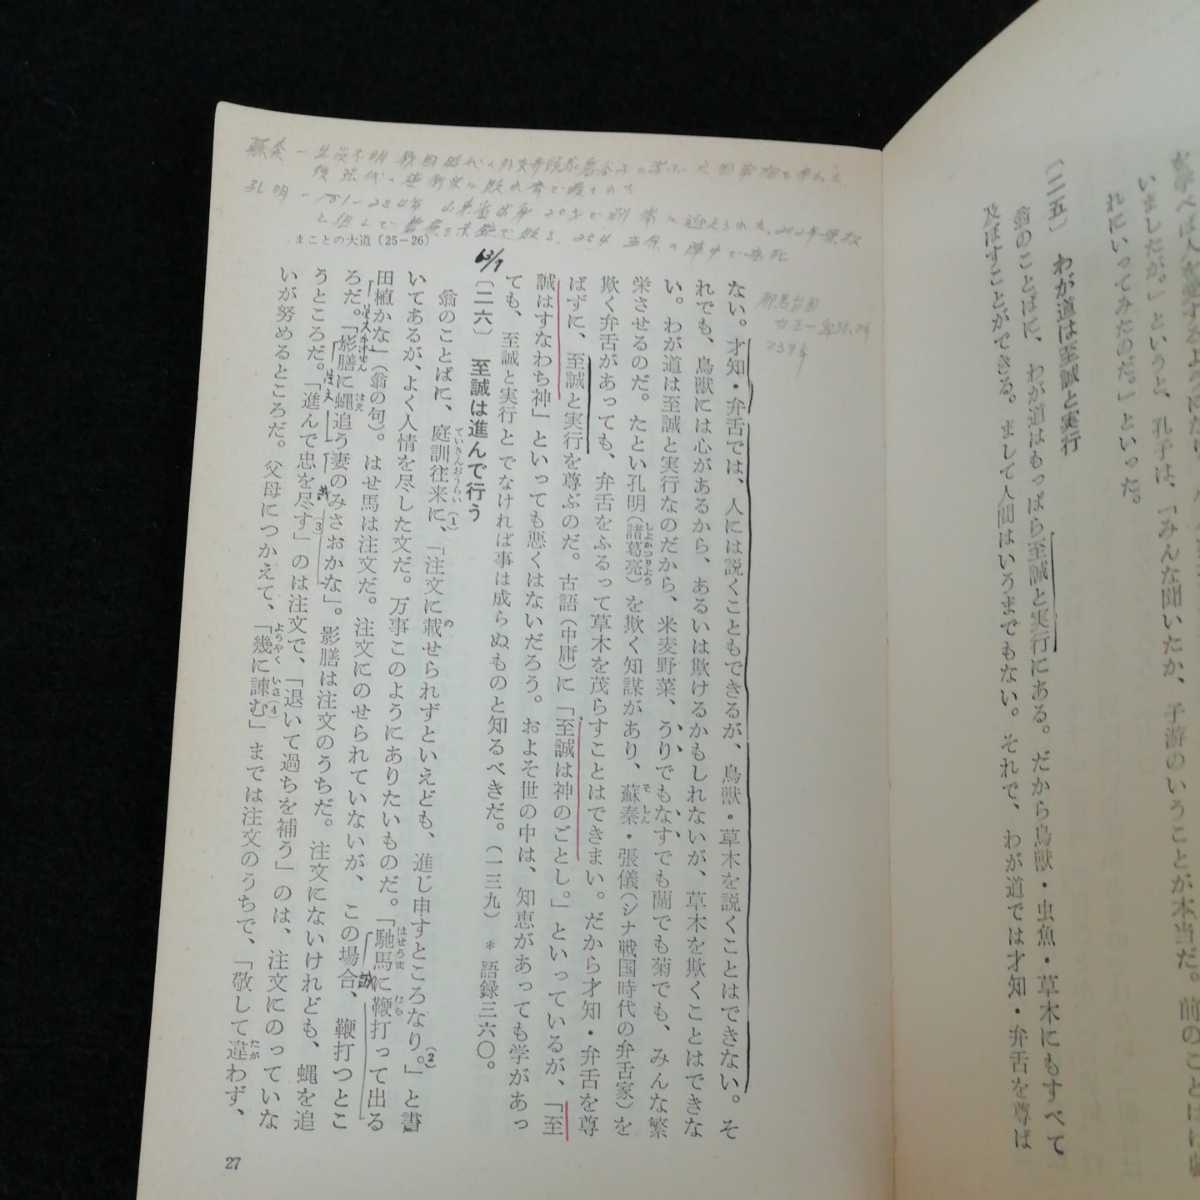 が学べば人を愛するよ
いましたが。」というと、孔子は、「みんな聞いたか、子游のいうことが本当だ。前のことは
れにいってみたのだ。」といった。
〔二五〕 わが道は至誠と実行
翁のことばに、わが道はもっぱら至誠と実行にある。だから鳥獣・虫魚・草木にもすべて
及ぼすことができる。まして人間はいうまでもない。それで、わが道では才知・弁舌を尊ば
ない。才知・弁舌では、人には説くこともできるが、鳥獣・草木を説くことはできない。そ
れでも、鳥獣には心があるから、あるいは欺けるかもしれないが、草木を欺くことはできな
い。わが道は至誠と実行なのだから、米麦野菜、うりでもなすでも蘭でも菊でも、みんな繁
栄させるのだ。たとい孔明(諸葛亮)を欺く知謀があり、蘇秦・張儀(シナ戦国時代の弁舌家)を
欺く弁舌があっても、弁舌をふるって草木を茂らすことはできまい。だから才知・弁舌を尊
ばずに、至誠と実行を尊ぶのだ。古語(中庸)に「至誠は神のごとし。」といっているが、「至
誠はすなわち神」といっても悪くはないだろう。およそ世の中は、知恵があっても学があっ
ても、至誠と実行とでなければ事は成らぬものと知るべきだ。(一三九) *語録三六〇。
〔二六〕 至誠は進んで行う
翁のことばに、庭訓往来に、(1)「注文に載せられずといえども、進じ申すところなり。」(2)と書
いてあるが、よく人情を尽した文だ。万事このようにありたいものだ。「馳馬に鞭打って出る
田植かな」(翁の句)。はせ馬は注文だ。注文にのせられていないが、この場合、鞭打つとこ
ろだ。「影膳に蠅追う妻のみさおかな」。影膳は注文のうちだ。注文にないけれども、蠅を追
うところだ。「進んで忠を尽す」(3)のは注文で、「退いて過ちを補う」のは、注文にのっていな
いが努めるところだ。父母につかえて、「幾に諌む」(4)までは注文のうちで、「敬して違わず、
まことの大道(25−26)
27